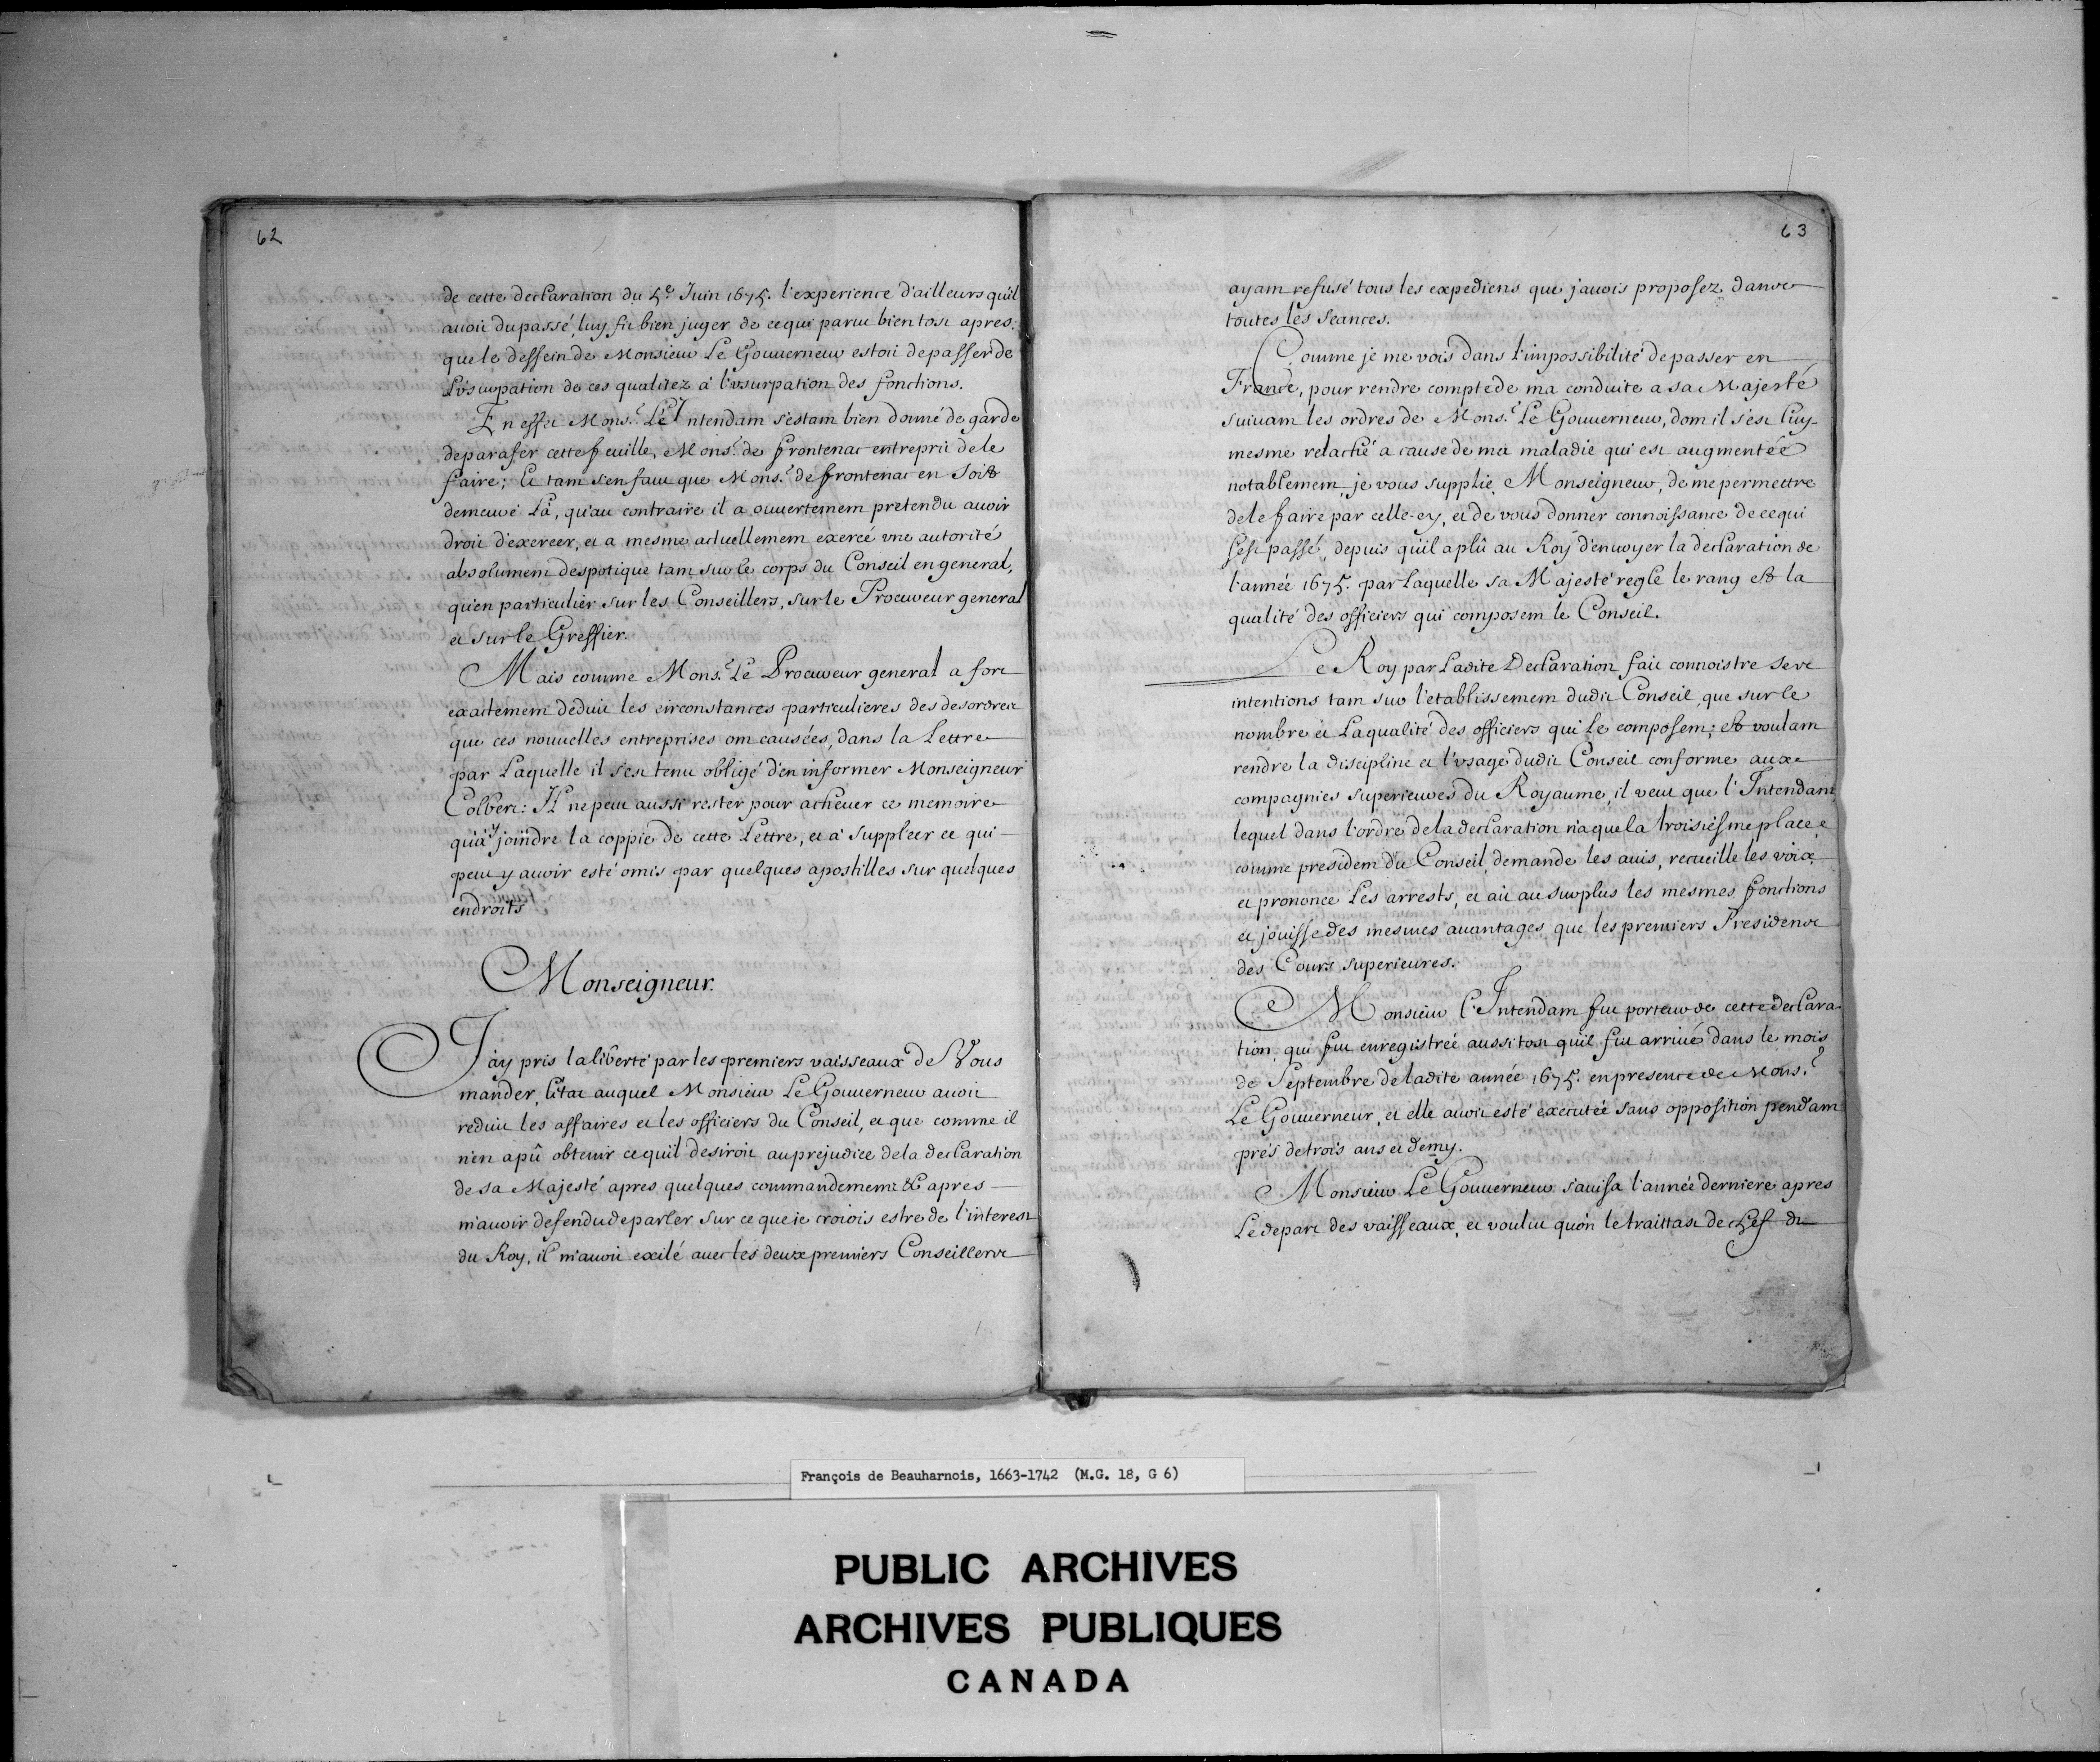 62
de cette declaration du 5.e Juin 1675. l'experience d'ailleurs qu'il
auoit du passé, luy fit bien juger de ce qui parut bien tost apres:
que le dessein de Monsieur Le Gouuerneur estoit de passer de
L'vsurpation de ces qualitez à l'vsurpation des fonctions.
En effet Mons.r Le Intendant s'estant bien donné de garde
de parafer cette feuille, Mons.r de frontenac entreprit de le
faire; Et tant s'en faut que Mons.r de frontenac en soit
demeuré Là, qu'au contraire il a ouuertement pretendu auoir
droit d'exercer, et a mesme actuellement exercé vne autorité
absolument despotique tant sur le corps du Conseil en general,
qu'en particulier sur les Conseillers, sur le Procureur general
et sur le Greffier.
Mais comme Mons.r Le Procureur general a fort
exactement deduit les circonstances particulieres des desordres
que ces nouuelles entreprises ont causées, dans la Lettre
par Laquelle il s'est tenu obligé d'en informer Monseigneur
Colbert: Il ne peut aussi rester pour acheuer ce memoire
qu'à y joindre la coppie de cette Lettre, et à suppleer ce qui
peut y auoir esté omis par quelques apostilles sur quelques
endroits
Monseigneur.
J'ay pris la liberté par les premiers vaisseaux de Vous
mander, L'état auquel Monsieur Le Gouuerneur auoit
reduit les affaires et les officiers du Conseil, et que comme il
n'en a pû obtenir ce qu'il desiroit au prejudice de la declaration
de sa Majesté apres quelques commandements & apres
m'auoir defendu de parler sur ce que ie croiois estre de l'interest
du Roy, il m'auoit exilé auec les deux premiers Conseillers
63
ayant refusé tous les expediens que j'auois proposez dans
toutes les seances.
Comme je me vois dans l'impossibilité de passer en
France, pour rendre compte de ma conduite a sa Majesté
suiuant les ordres de Mons.r Le Gouuerneur, dont il s'est luy-
mesme relaché a cause de ma maladie qui est augmentée
notablement, je vous supplie, Monseigneur, de me permettre
de le faire par celle-cy, et de vous donner connoissance de ce qui
s'est passé, depuis qu'il a plû au Roy d'enuoyer la declaration de
l'année 1675. par Laquelle sa Majesté regle le rang et la
qualité des officiers qui composent le Conseil.
Le Roy par Ladite Declaration fait connoistre ses
intentions tant sur l'etablissement dudit Conseil, que sur le
nombre et La qualité des officiers qui Le composent; et voulant
rendre la discipline et l'vsage dudit Conseil conforme aux
compagnies superieures du Royaume, il veut que l'Intendant,
lequel dans l'ordre de la declaration n'a que la troisiesme place,
comme president du Conseil, demande les auis, recueille les voix,
et prononce Les arrests, et ait au surplus les mesmes fonctions
et jouisse des mesmes auantages que les premiers Presidens
des Cours superieures.
Monsieur l'Intendant fut porteur de cette declara-
tion, qui fut enregistrée aussi tost qu'il fut arriué dans le mois
de Septembre de ladite année 1675. en presence de Mons.r
Le Gouuerneur, et elle auoit esté executée sans opposition pendant
prés de trois ans et demy.
Monsieur Le Gouuerneur s'auisa l'année derniere apres
Le depart des vaisseaux, et voulut qu'on le traittast de chef du
François de Beauharnois, 1663-1742 (M.G. 18, G 6)
PUBLIC ARCHIVES
ARCHIVES PUBLIQUES
CANADA